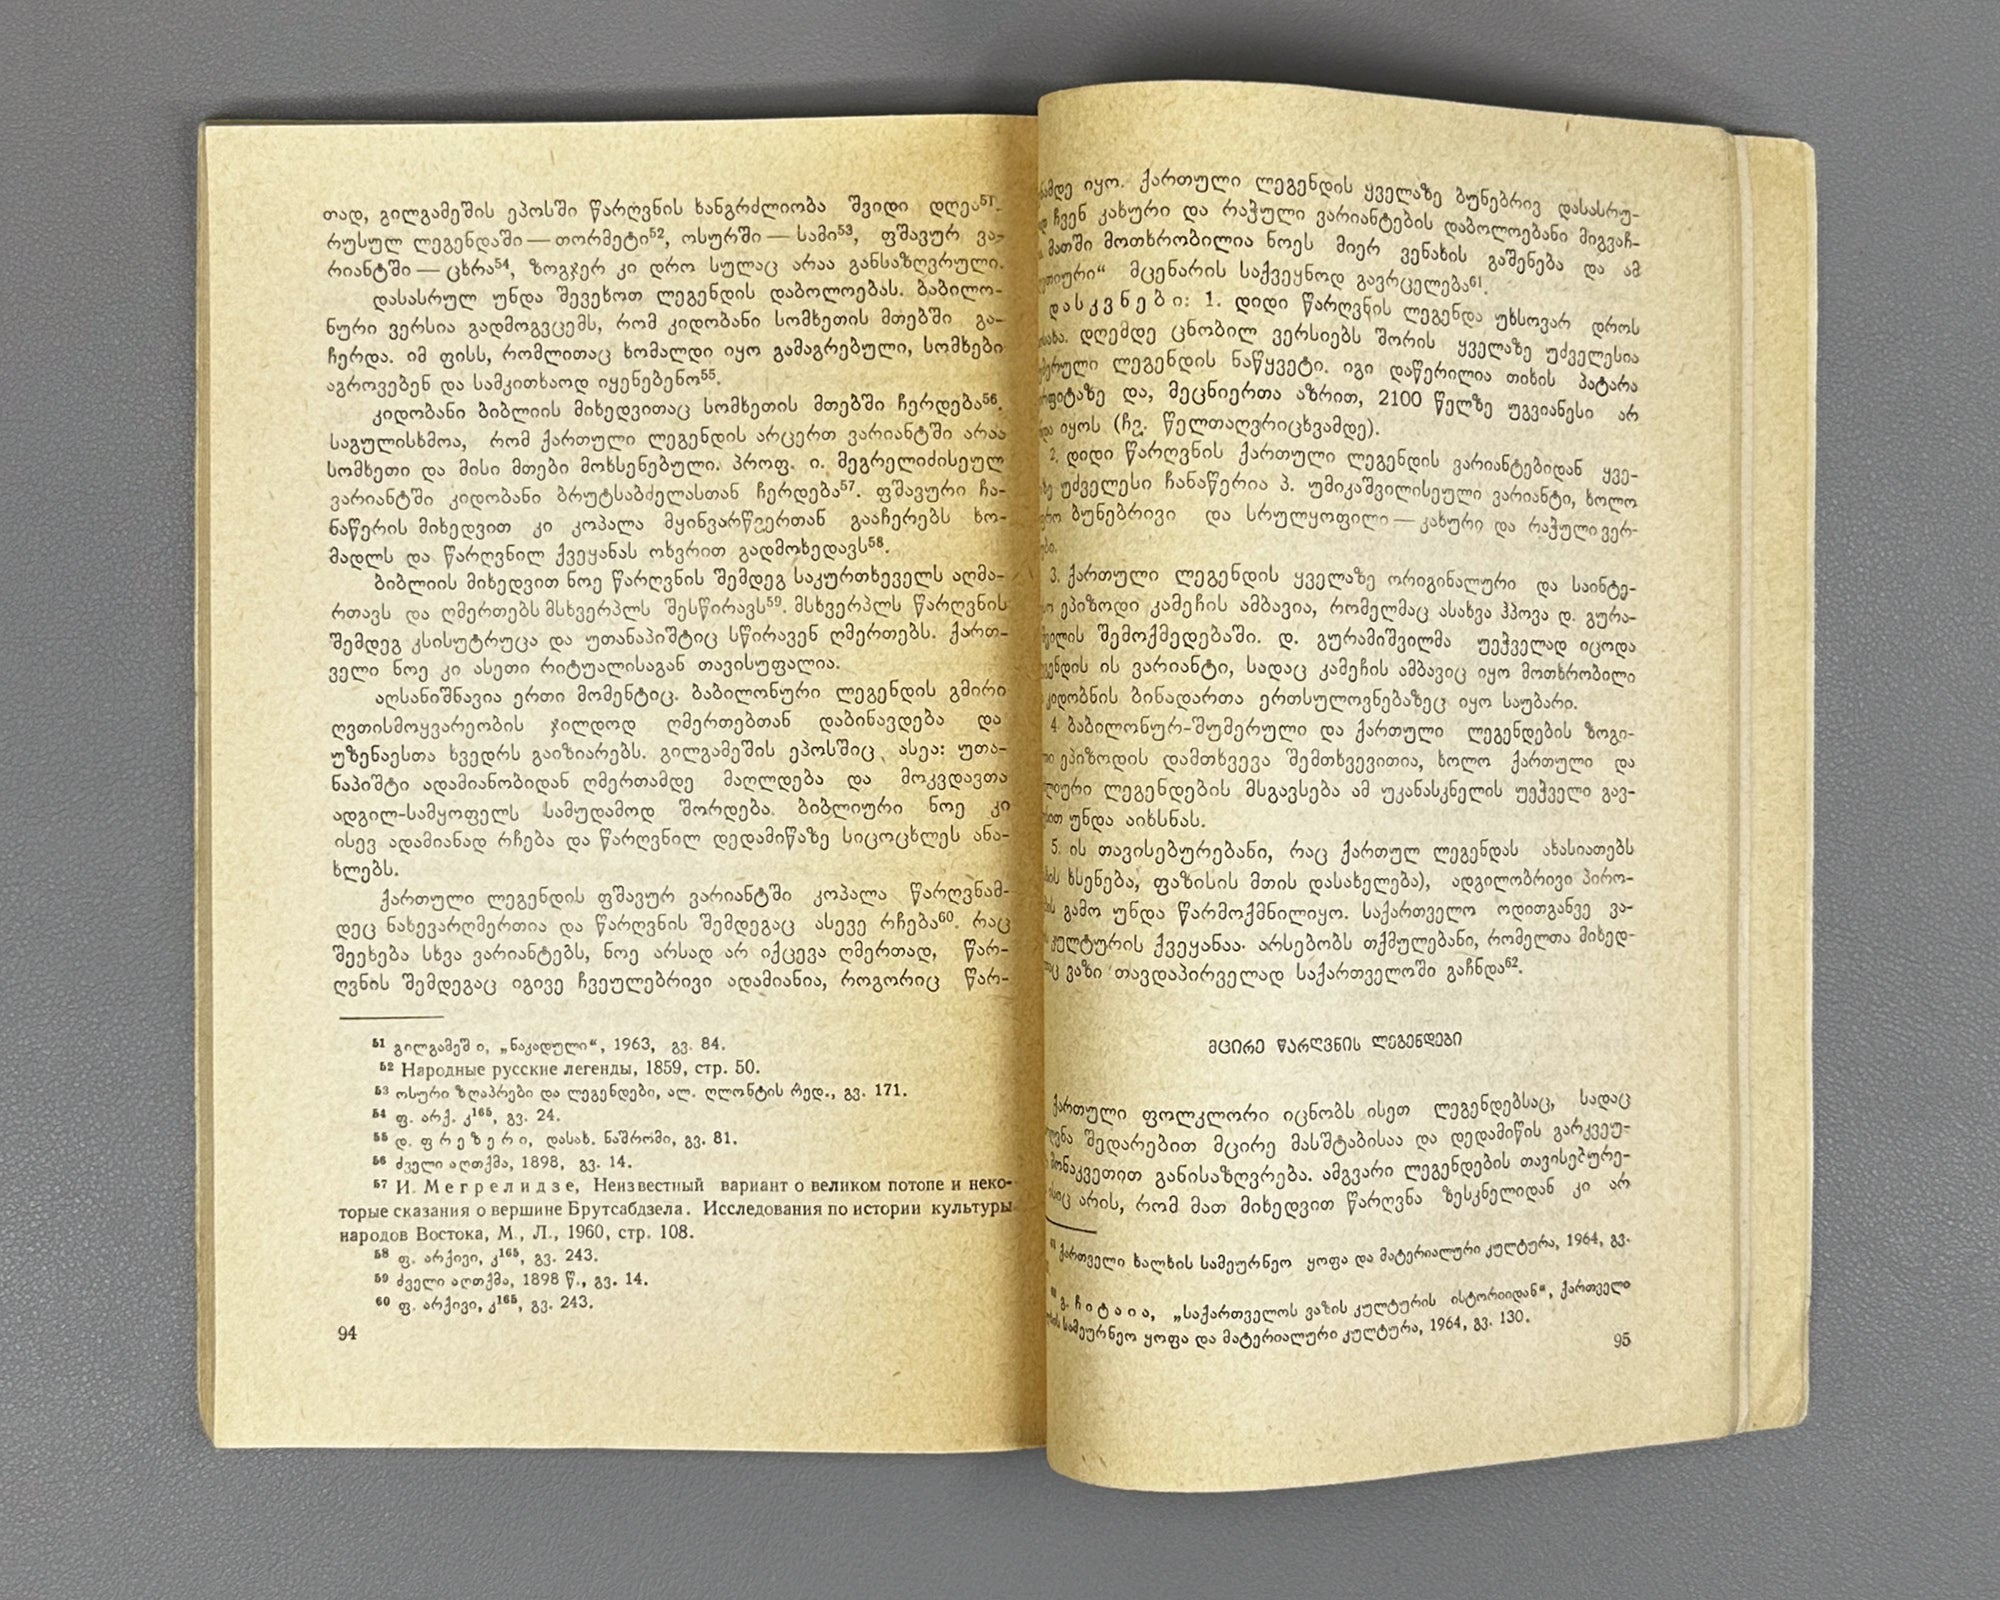 თად, გილგამეშის ეპოსში წარღვნის ხანგრძლიობა შვიდი დღეა⁵¹.
რუსულ ლეგენდაში — თორმეტი⁵², ოსურში — სამი⁵³, ფშავურ ვა-
რიანტში — ცხრა⁵⁴, ზოგჯერ კი დრო სულაც არაა განსაზღვრული.
დასასრულ უნდა შევეხოთ ლეგენდის დაბოლოებას. ბაბილო-
ნური ვერსია გადმოგვცემს, რომ კიდობანი სომხეთის მთებში გა-
ჩერდა. იმ ფისს, რომლითაც ხომალდი იყო გამაგრებული, სომხები
აგროვებენ და სამკითხაოდ იყენებენო⁵⁵.
კიდობანი ბიბლიის მიხედვითაც სომხეთის მთებში ჩერდება⁵⁶.
საგულისხმოა, რომ ქართული ლეგენდის არცერთ ვარიანტში არაა
სომხეთი და მისი მთები მოხსენებული. პროფ. ი. მეგრელიძისეულ
ვარიანტში კიდობანი ბრუტსაბძელასთან ჩერდება⁵⁷. ფშავური ჩა-
ნაწერის მიხედვით კი კოპალა მყინვარწვერთან გააჩერებს ხო-
მადლს და წარღვნილ ქვეყანას ოხვრით გადმოხედავს⁵⁸.
ბიბლიის მიხედვით ნოე წარღვნის შემდეგ საკურთხეველს აღმა-
რთავს და ღმერთებს მსხვერპლს შესწირავს⁵⁹. მსხვერპლს წარღვნის
შემდეგ კსისუტრუცა და უთანაპიშტიც სწირავენ ღმერთებს. ქართ-
ველი ნოე კი ასეთი რიტუალისაგან თავისუფალია.
აღსანიშნავია ერთი მომენტიც. ბაბილონური ლეგენდის გმირი
ღვთისმოყვარეობის ჯილდოდ ღმერთებთან დაბინავდება და
უზენაესთა ხვედრს გაიზიარებს. გილგამეშის ეპოსშიც ასეა: უთა-
ნაპიშტი ადამიანობიდან ღმერთამდე მაღლდება და მოკვდავთა
ადგილ-სამყოფელს სამუდამოდ შორდება. ბიბლიური ნოე კი
ისევ ადამიანად რჩება და წარღვნილ დედამიწაზე სიცოცხლეს ანა-
ხლებს.
ქართული ლეგენდის ფშავურ ვარიანტში კოპალა წარღვნამ-
დეც ნახევარღმერთია და წარღვნის შემდეგაც ასევე რჩება⁶⁰. რაც
შეეხება სხვა ვარიანტებს, ნოე არსად არ იქცევა ღმერთად, წარ-
ღვნის შემდეგაც იგივე ჩვეულებრივი ადამიანია, როგორიც წარ-
⁵¹ გილგამეშ ი, „ნაკადული“, 1963, გვ. 84.
⁵² Народные русские легенды, 1859, стр. 50.
⁵³ ოსური ზღაპრები და ლეგენდები, ალ. ღლონტის რედ., გვ. 171.
⁵⁴ ფ. არქ. კ¹⁶⁵, გვ. 24.
⁵⁵ დ. ფ რ ე ზ ე რ ი, დასახ. ნაშრომი, გვ. 81.
⁵⁶ ძველი აღთქმა, 1898, გვ. 14.
⁵⁷ И. М е г р е л и д з е, Неизвестный вариант о великом потопе и неко-
торые сказания о вершине Брутсабдзела. Исследования по истории культуры
народов Востока, М., Л., 1960, стр. 108.
⁵⁸ ფ. არქივი, კ¹⁶⁵, გვ. 243.
⁵⁹ ძველი აღთქმა, 1898 წ., გვ. 14.
⁶⁰ ფ. არქივი, კ¹⁶⁵, გვ. 243.
94
იყო. ქართული ლეგენდის ყველაზე ბუნებრივ დასასრუ-
ჩვენ კახური და რაჭული ვარიანტების დაბოლოებანი მიგვაჩ-
მათში მოთხრობილია ნოეს მიერ ვენახის გაშენება და ამ
მცენარის საქვეყნოდ გავრცელება⁶¹.
დ ა ს კ ვ ნ ე ბ ი: 1. დიდი წარღვნის ლეგენდა უხსოვარ დროს
დღემდე ცნობილ ვერსიებს შორის ყველაზე უძველესია
ლეგენდის ნაწყვეტი. იგი დაწერილია თიხის პატარა
და, მეცნიერთა აზრით, 2100 წელზე უგვიანესი არ
იყოს (ჩვ. წელთაღვრიცხვამდე).
2. დიდი წარღვნის ქართული ლეგენდის ვარიანტებიდან ყვე-
უძველესი ჩანაწერია პ. უმიკაშვილისეული ვარიანტი, ხოლო
ბუნებრივი და სრულყოფილი — კახური და რაჭული ვერ-
3. ქართული ლეგენდის ყველაზე ორიგინალური და საინტე-
ეპიზოდი კამეჩის ამბავია, რომელმაც ასახვა ჰპოვა დ. გურა-
შემოქმედებაში. დ. გურამიშვილმა უეჭველად იცოდა
ის ვარიანტი, სადაც კამეჩის ამბავიც იყო მოთხრობილი
კიდობნის ბინადართა ერთსულოვნებაზეც იყო საუბარი.
4. ბაბილონურ-შუმერული და ქართული ლეგენდების ზოგი-
ეპიზოდის დამთხვევა შემთხვევითია, ხოლო ქართული და
ლეგენდების მსგავსება ამ უკანასკნელის უეჭველი გავ-
უნდა აიხსნას.
5. ის თავისებურებანი, რაც ქართულ ლეგენდას ახასიათებს
ხსენება, ფაზისის მთის დასახელება), ადგილობრივი პირო-
გამო უნდა წარმოქმნილიყო. საქართველო ოდითგანვე ვა-
კულტურის ქვეყანაა. არსებობს თქმულებანი, რომელთა მიხედ-
ვაზი თავდაპირველად საქართველოში გაჩნდა⁶².
მცირე წარღვნის ლეგენდები
ქართული ფოლკლორი იცნობს ისეთ ლეგენდებსაც, სადაც
შედარებით მცირე მასშტაბისაა და დედამიწის გარკვეუ-
მონაკვეთით განისაზღვრება. ამგვარი ლეგენდების თავისებურე-
არის, რომ მათ მიხედვით წარღვნა ზესკნელიდან კი არ
⁶¹ ქართველი ხალხის სამეურნეო ყოფა და მატერიალური კულტურა, 1964, გვ.
გ. ჩ ი ტ ა ი ა, „საქართველოს ვაზის კულტურის ისტორიიდან“, ქართველი
სამეურნეო ყოფა და მატერიალური კულტურა, 1964, გვ. 130.
95